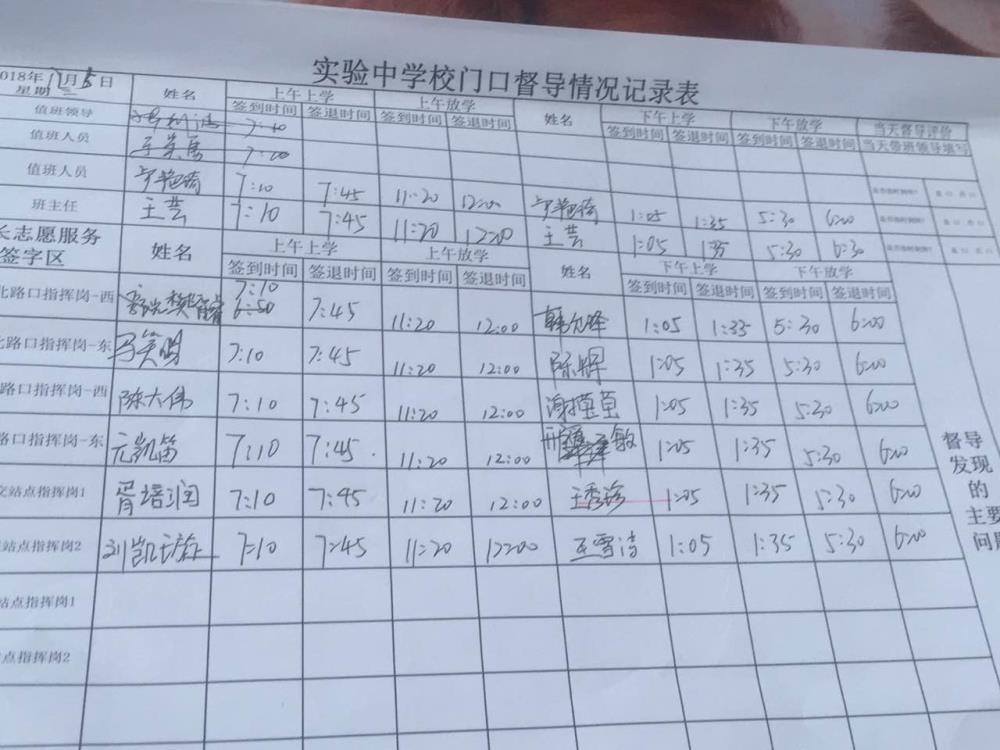 实验中学校门口督导情况记录表
2018年12月5日
星期三 姓名 上午上学 上午放学 姓名 下午上学 下午放学 当天督导评价
签到时间 签退时间 签到时间 签退时间 签到时间 签退时间 签到时间 签退时间 当天带班领导填写
值班领导 7:10
值班人员 7:00
值班人员 7:10 7:45 11:20 12:00 1:05 1:35 5:30 6:00
班主任 王芸 7:10 7:45 11:20 12:00 王芸 1:05 1:35 5:30 6:30
长志愿服务
签字区 姓名 上午上学 上午放学 姓名 下午上学 下午放学
签到时间 签退时间 签到时间 签退时间 签到时间 签退时间 签到时间 签退时间
北路口指挥岗-西 7:10 6:50 7:45 11:20 12:00 韩允锋 1:05 1:35 5:30 6:00
北路口指挥岗-东 马笑明 7:10 7:45 11:20 12:00 陈辉 1:05 1:35 5:30 6:00
路口指挥岗-西 陈大伟 7:10 7:45 11:20 12:00 1:05 1:35 5:30 6:00
路口指挥岗-东 元凯笛 7:10 7:45 11:20 12:00 敏 1:05 1:35 5:30 6:00
交站点指挥岗1 胥培润 7:10 7:45 11:20 12:00 王秀珍 1:05 1:35 5:30 6:00
站点指挥岗2 刘凯 7:10 7:45 11:20 12:00 王雪洁 1:05 1:35 5:30 6:00
站点指挥岗1
点指挥岗2
督导
发现
的
主要
问题